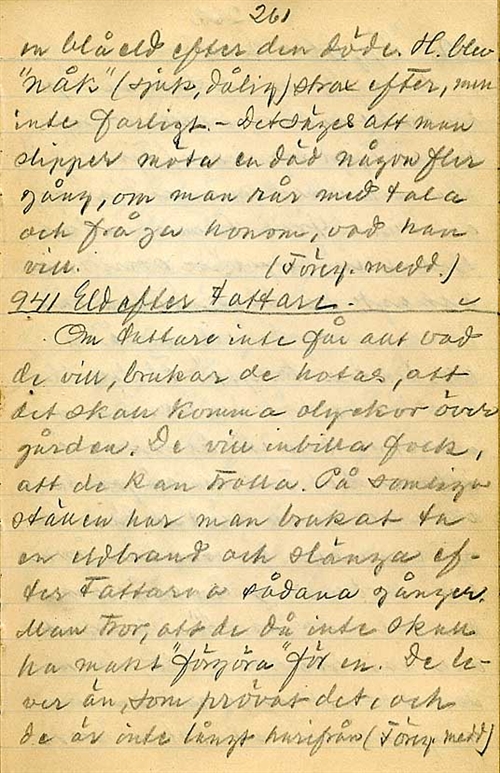 261
en blå eld efter den döde. H. blev
"nåk" (sjuk, dålig) strax efter, men
inte farligt. – Det säges att man
slipper möta en död någon fler
gång, om man rår med tala
och fråga honom, vad han
vill. (Föreg. medd.)
941 Eld efter tattare.
Om tattare inte får allt vad
de vill, brukar de hotas, att
det skall komma olyckor över
gården. De vill inbilla folk,
att de kan trolla. På somliga
ställen har man brukat ta
en eldbrand och slänga ef-
ter tattarna sådana gånger.
Man tror, att de då inte skall
ha makt "förgöra" för en. De le-
ver än, som prövat det, och
de är inte långt härifrån (Föreg. medd)